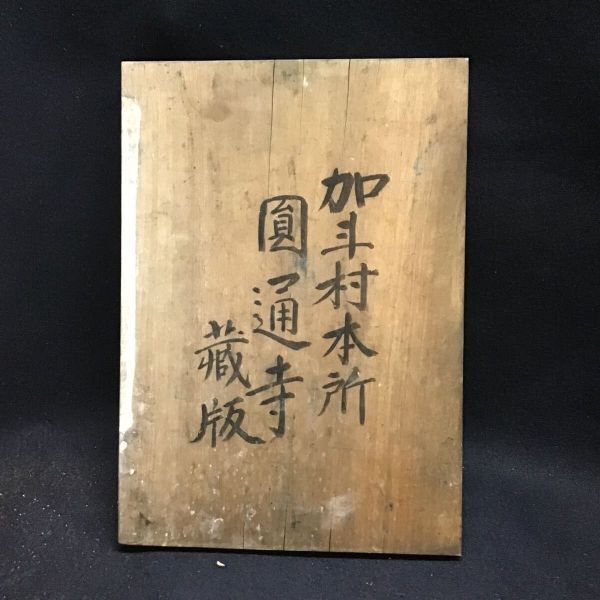 加斗村本所
圓通寺
藏版